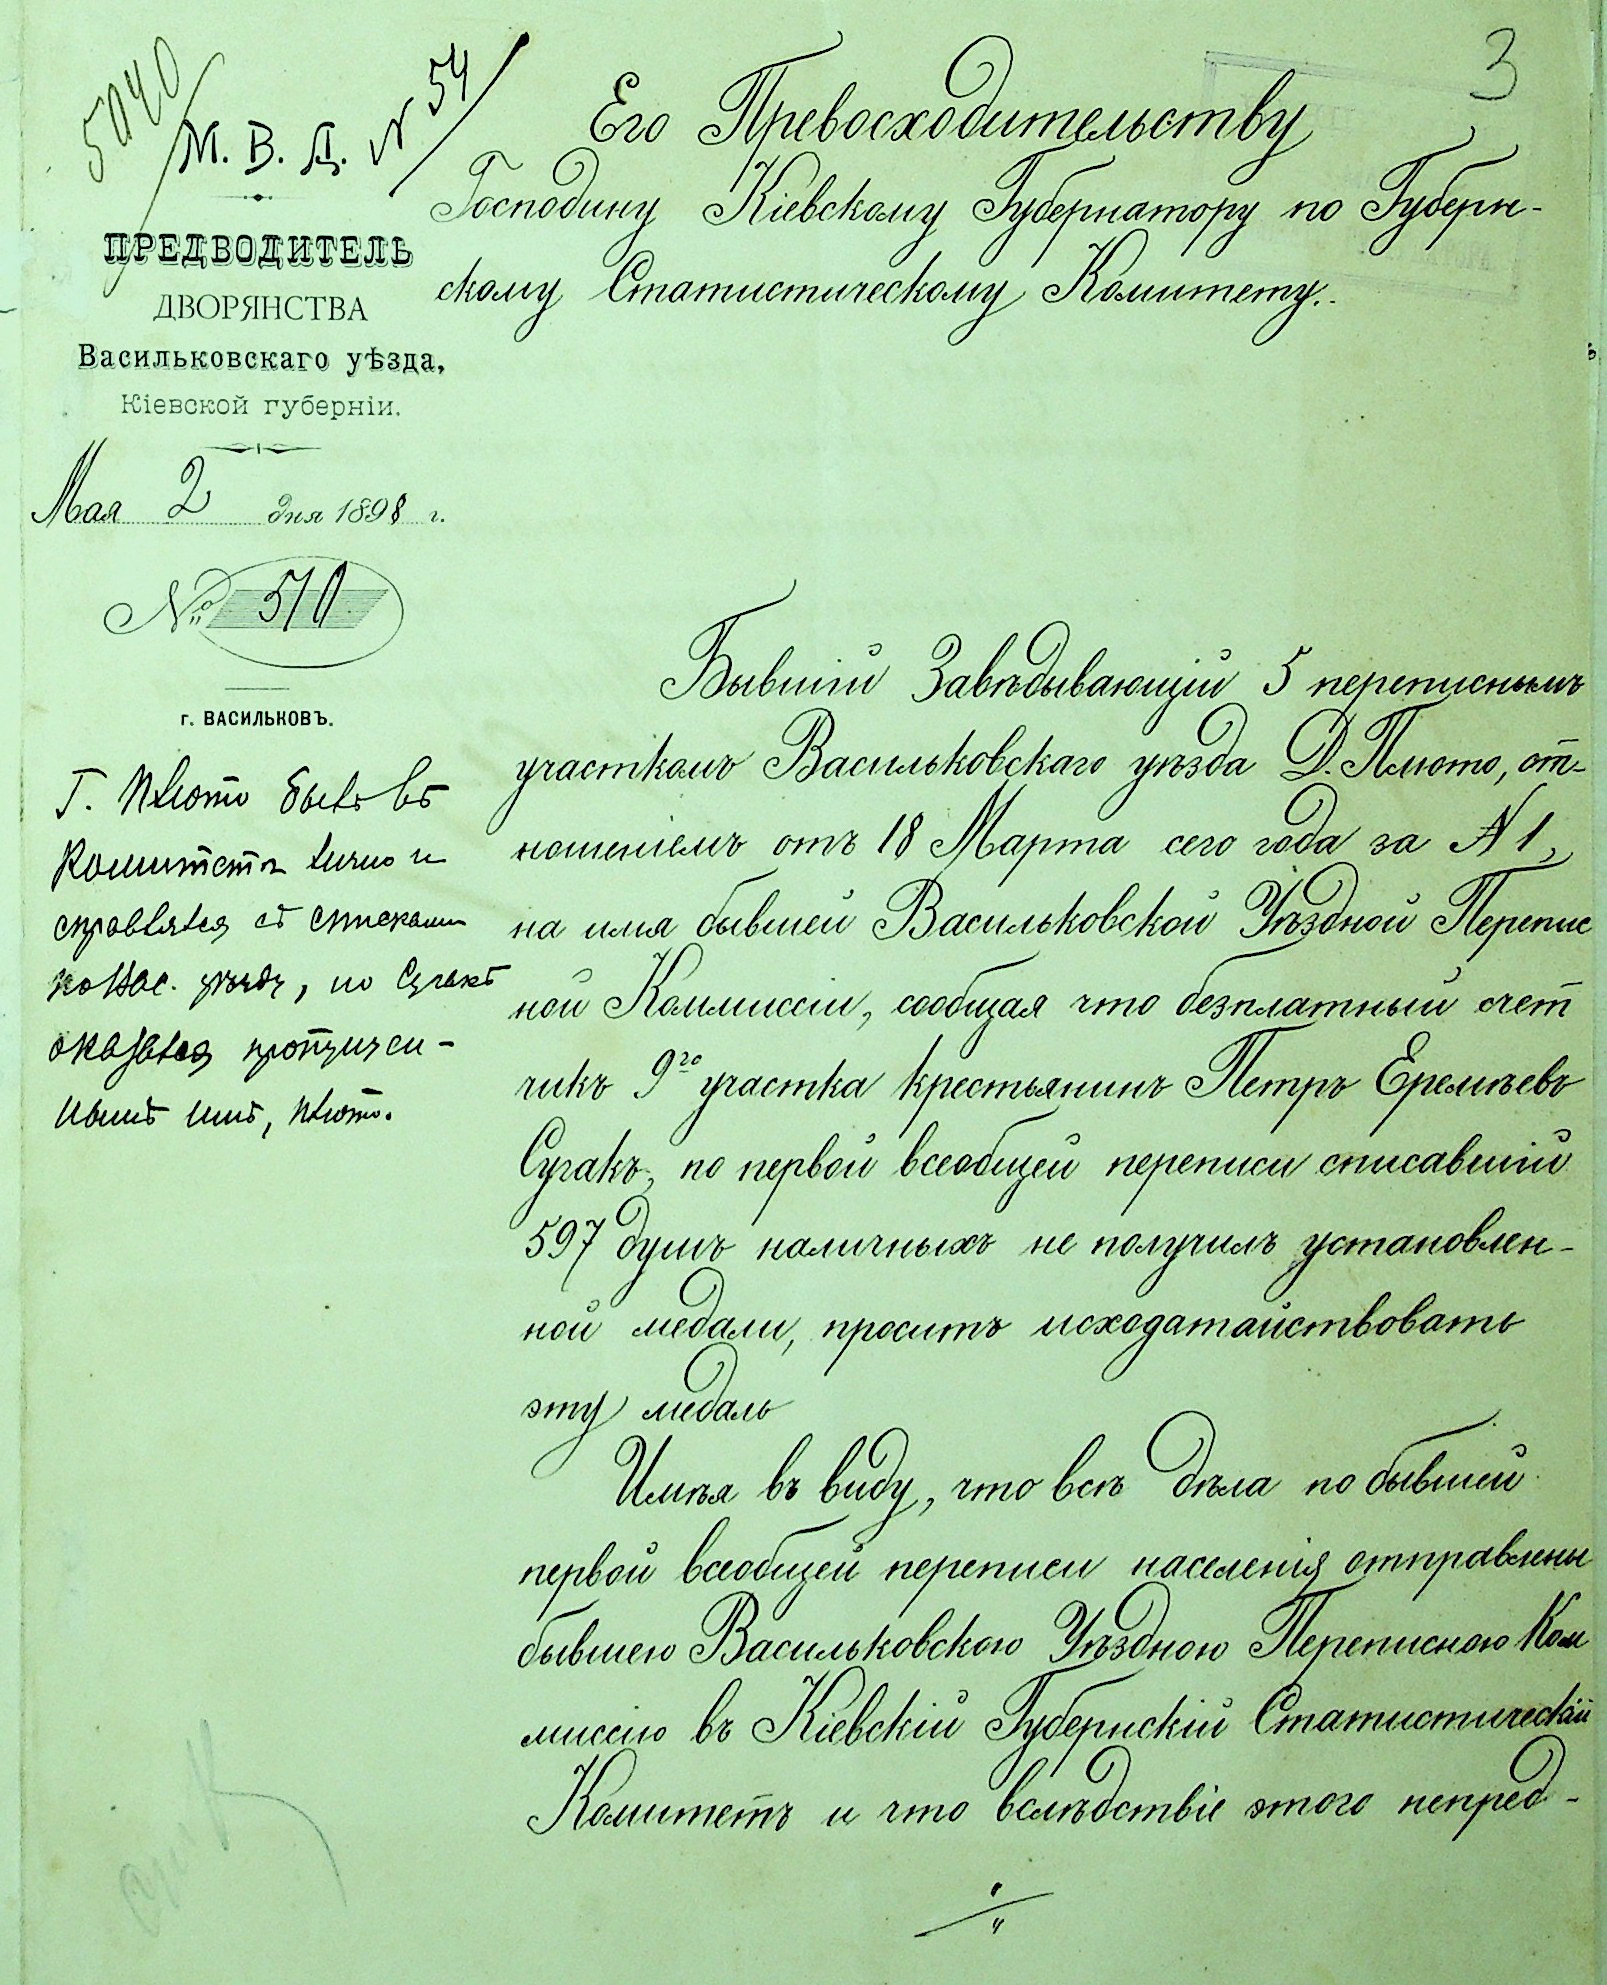 3
5040
М. В. Д. № 54
ПРЕДВОДИТЕЛЬ
ДВОРЯНСТВА
Васильковскаго уѣзда,
Кіевской губерніи.
Мая 2 дня 1898 г.
№ 510
г. ВАСИЛЬКОВЪ.
Его Превосходительству
Господину Кіевскому Губернатору по Губерн-
скому Статистическому Комитету.
Бывшій Завѣдывающій 5 переписнымъ
участкомъ Васильковскаго уѣзда Д. Плюто, от-
ношеніемъ отъ 18 Марта сего года за № 1,
на имя бывшей Васильковской Уѣздной Перепис
ной Коммиссіи, сообщая что безплатный счет
чикъ 9го участка крестьянинъ Петръ Еремѣевъ
Сугакъ, по первой всеобщей переписи списавшій
597 душъ наличныхъ не получилъ установлен-
ной медали, проситъ исходатайствовать
эту медаль
Имѣя въ виду, что всѣ дѣла по бывшей
первой всеобщей переписи населенія отправлены
бывшею Васильковскою Уѣздною Переписною Ком
миссіею въ Кіевскій Губернскій Статистическій
Комитетъ и что вслѣдствіе этого непред-
Г. Плюто былъ въ
Комитетѣ лично и
справлялся съ списками
по Вас. уѣзду, но Сугакъ
оказался пропущен-
нымъ имъ, Плюто.